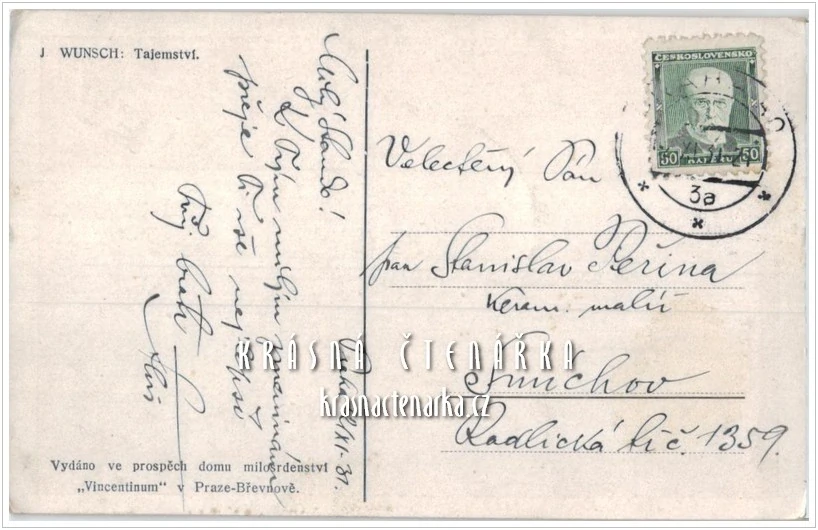 J WUNSCH: Tajemství.
Milý Stando!
K Tvým milým jmeninám
přeje Ti vše nejlepší
Tvůj bratr
/XI. 31.
Velectěný Pán
pan Stanislav Peřina
Keram. malíř
Smíchov
Radlická tř. č. 1359.
ČESKOSLOVENSKO
50 50
3a
KRÁSNÁ ČTENÁŘKA
krasnactenarka.cz
Vydáno ve prospěch domu milosrdenství
„Vincentinum" v Praze-Břevnově.